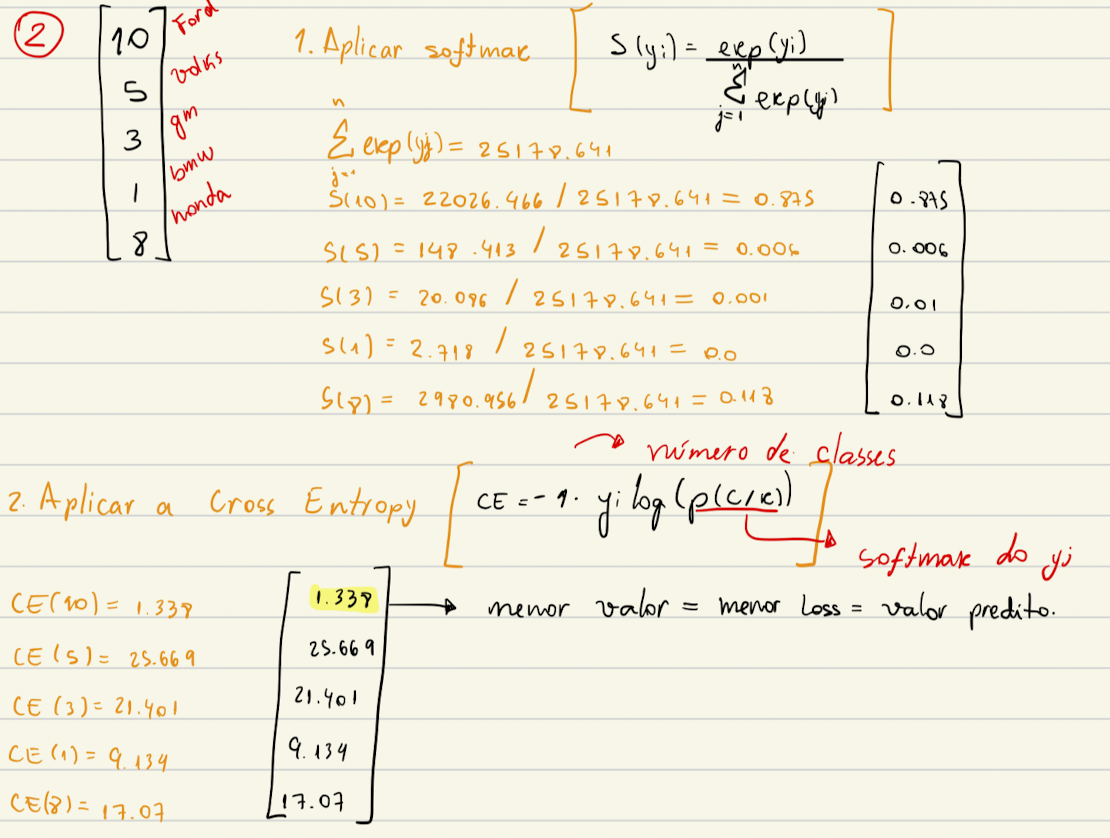 2
10 Ford
5 volks
3 gm
1 bmw
8 honda
1. Aplicar softmax [ S(yi) = exp(yi) / n Σ j=1 exp(yj) ]
n Σ j=1 exp(yj) = 25178.641
S(10) = 22026.466 / 25178.641 = 0.875
S(5) = 148.413 / 25178.641 = 0.006
S(3) = 20.086 / 25178.641 = 0.001
S(1) = 2.718 / 25178.641 = 0.0
S(8) = 2980.956 / 25178.641 = 0.118
0.875
0.006
0.01
0.0
0.118
número de classes
2. Aplicar a Cross Entropy [ CE = -1. yi log(p(c/x)) ]
softmax do yi
CE(10) = 1.338
CE(5) = 25.669
CE(3) = 21.401
CE(1) = 9.134
CE(8) = 17.07
1.338 → menor valor = menor Loss = valor predito.
25.669
21.401
9.134
17.07